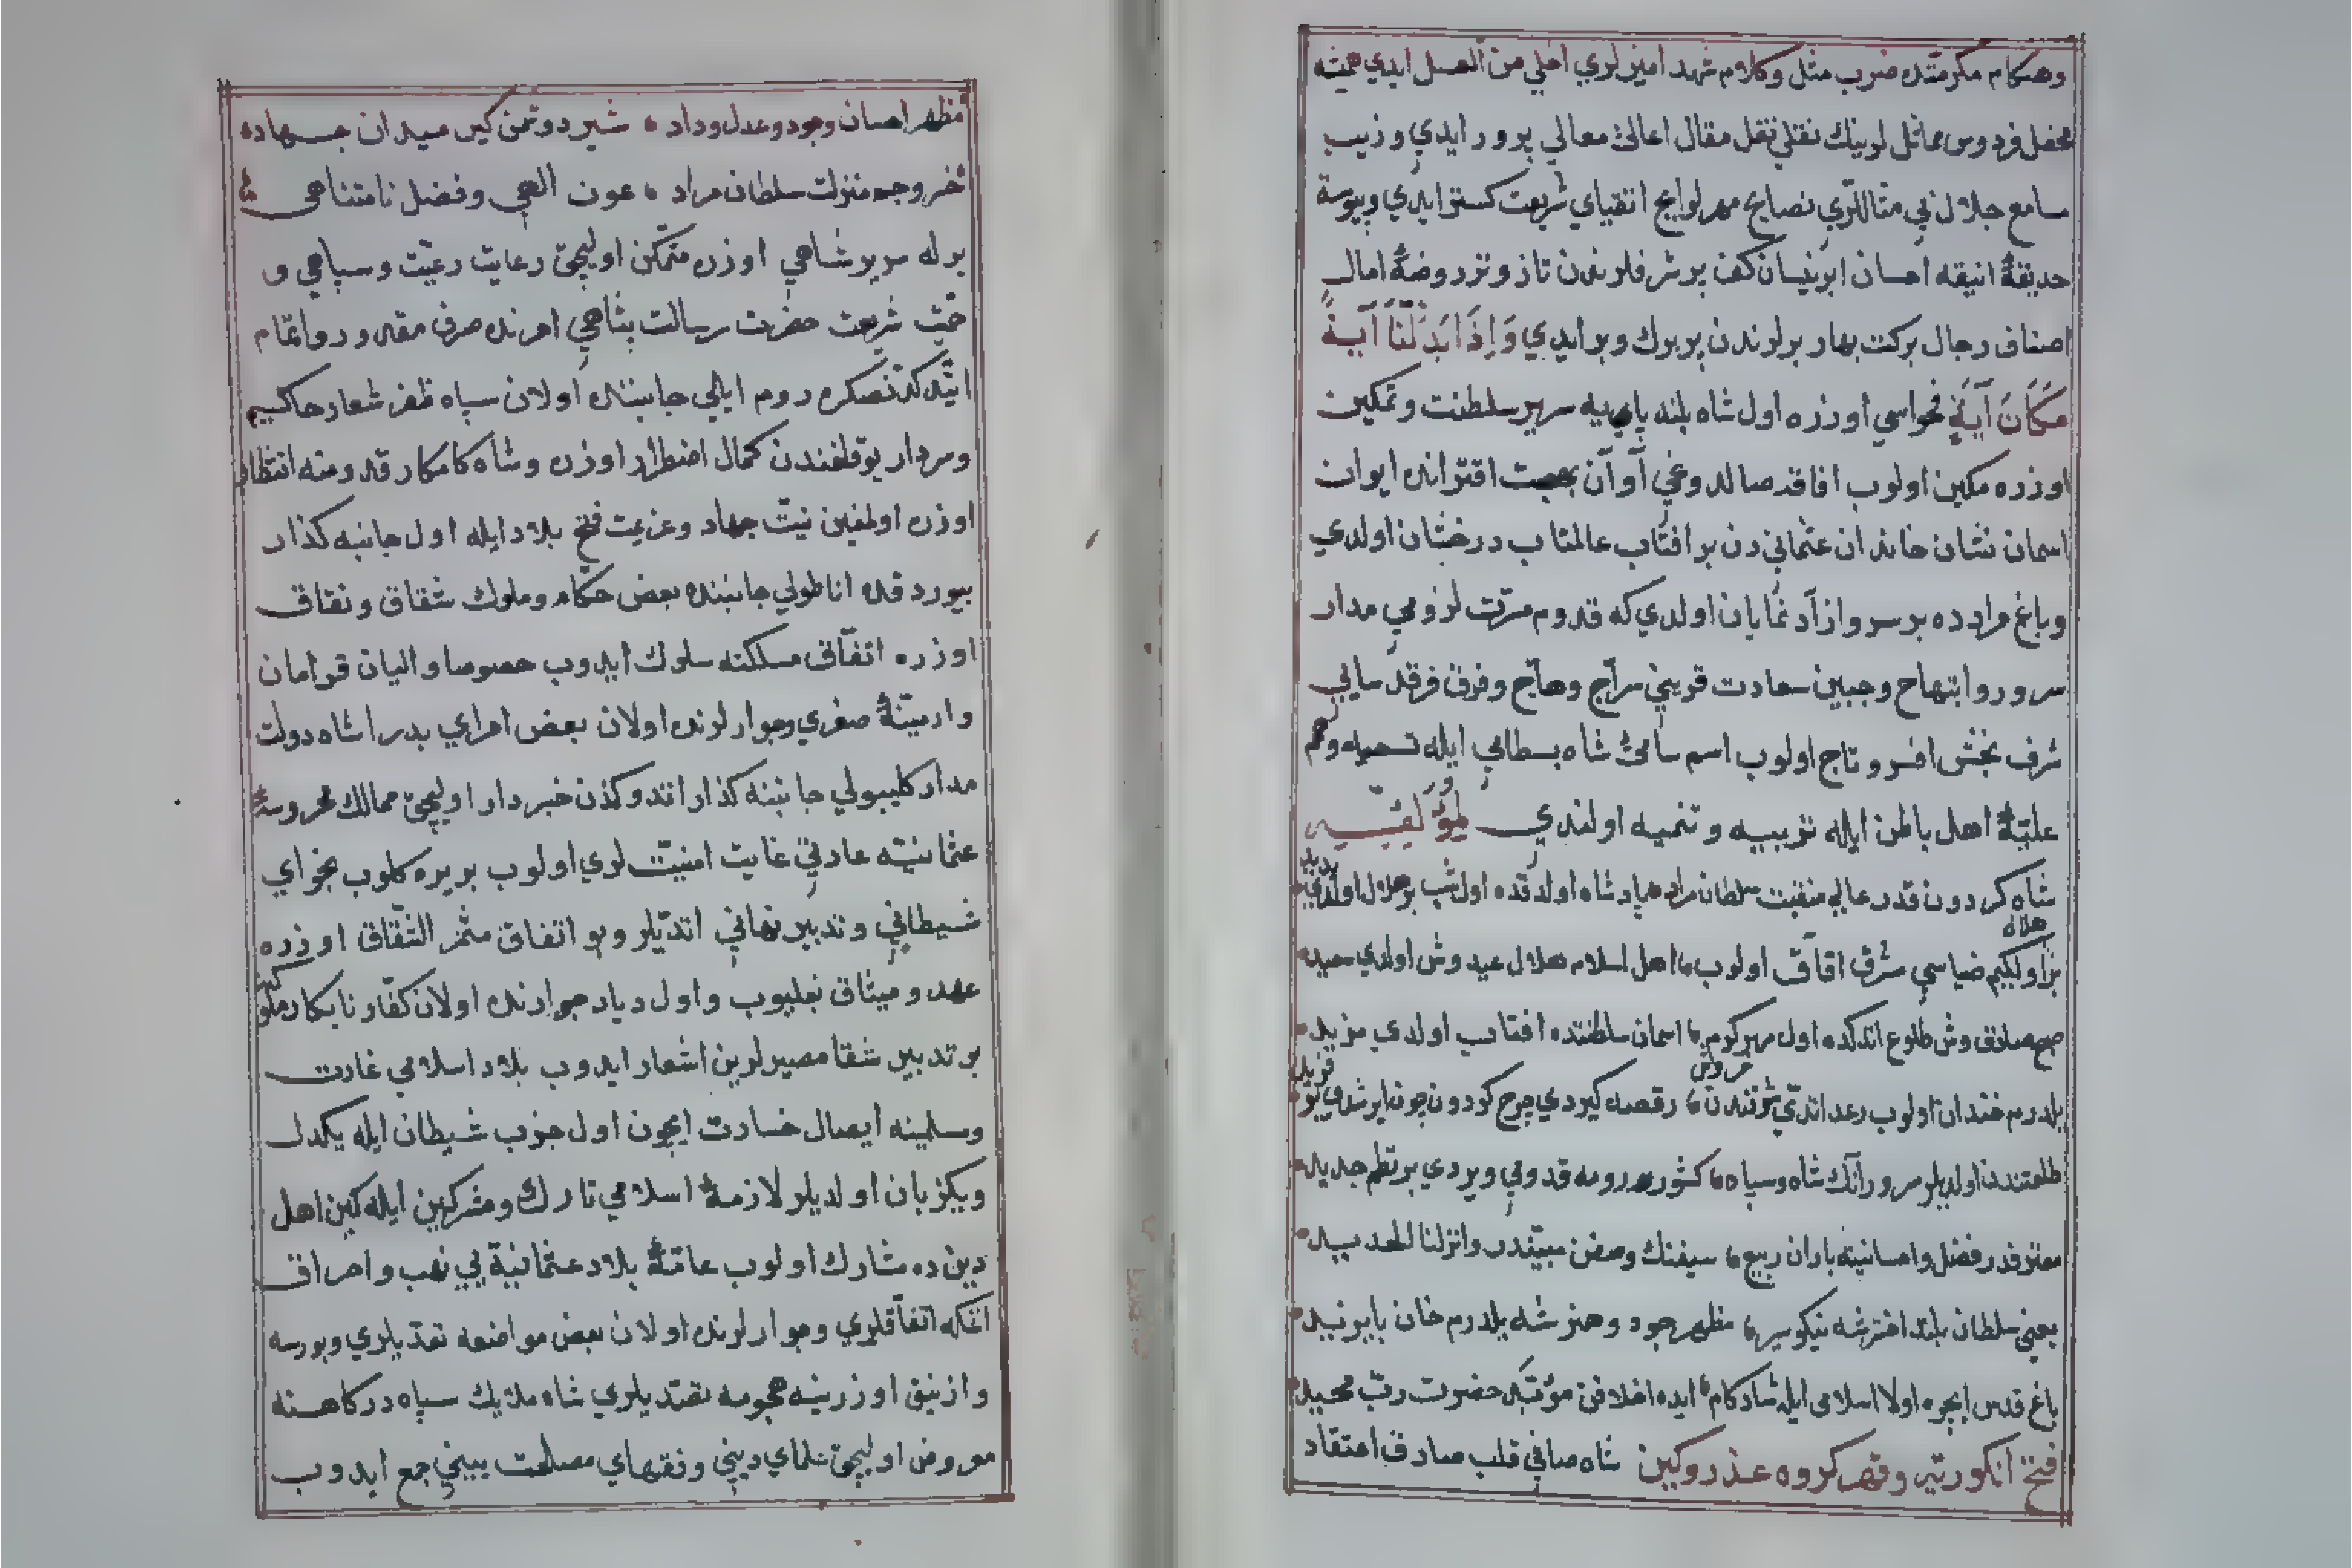 وهنكام مكرمتده ضرب مثل وكلام شهد اميزلري احلي من العسل ايدي هميشه
محفل فردوس مماثللرينك نقلي نقل مقال اعالئ معالي پرور ايدي وزيب
سامع جلال بي مثاللري نصايح مهر لوايح اتقياي شريعت كستر ايدي وپيوسته
حديقهٔ انيقه احسان ابر نيسان كف پر شرفلرندن تازه وتر روضهٔ امال
اصناف رجال بركت بهار برلرندن پر برك وبر ايدي وَاِذَا بَدَّلْنَا آيَةً
مَكَانَ آيَةٍ فحواسي اوزره اول شاه بلند پايه سرير سلطنت وتمكين
اوزره مكين اولوب افاقه صالدوغي آوآن بهجت اقترانده ايوان
اسمان نشان خاندان عثماني دن بر افتاب عالمتاب درخشان اولدي
وباغ مراد ده بر سرو ازاد نمايان اولدي كه قدوم مسرت لزومي مدار
سرور وابتهاج وجبين سعادت قريني سراج وهاج وفرق فرقد سايي
شرف بخش افسر وتاج اولوب اسم سامئ شاه بسطامي ايله تسميه وهم
عليهٔ اهل باطن ايله تربيه وتنميه اولندي لمؤلفه
شاه كردون قدر عالي منقبت سلطان مراد پادشاه اولدقده اول شب بر هلال اولدي پديد
هلال
ضياسي مشرق افاق اولوب اهل اسلامه هلال عيد وش اولدي سعيد
صبح صادق وش طلوع اتدكده اول مهر كرم اسمان سلطنتده افتاب اولدي مزيد
يلدرم خندان اولوب رعد اتدي شوقندن رقصه كيردي چرخ كردون چون ايرشدي بو نويد
طلعتندن اولديلر مسرور آنك شاه وسپاه كشور رومه قدومي ويردي بر نظم جديد
معترفدر فضل واحسانينه باران ربيع سيفنك وصفن مبيندر وانزلنا الحديد
يعني سلطان بلند اختر شه نيكو سير مظهر جود وهنر شه يلدرم خان بايزيد
باغ قدس ايچره اولا اسلامي ايله شادكام ايده اخلافن مؤبد حضرت رب مجيد
فتح انكوريه وقهر كروه عذر وكين شاه صافي قلب صادق اعتقاد
مظهر احسان وجود وعدل وداد شير دشمن كير ميدان جهاد
خسرو جم منزلت سلطان مراد عون الهي وفضل نامتناهي
برله سرير شاهي اوزره متمكن اوليجق رعايت رعيت وسپاهي و
حميت شريعت حضرت رسالت پناهي امرنده صرف مقدور واتمام
ايتدكدنصكره روم ايلي جانبنده اولان سپاه ظفر شعار حاكم
وسردار يوقلغندن كمال اضطرار اوزره وشاه كامكار قدومنه انتظار
اوزره اولمغين نيت جهاد وعزيمت فتح بلاد ايله اول جانبه كذار
بيوردقده اناطولي جانبنده بعض حكام وملوك شقاق ونفاق
اوزره اتفاق مسلكنه سلوك ايدوب خصوصا واليان قرامان
وارمنيهٔ صغري وجوارلرنده اولان بعض امراي بدرا شاه دولت
مدار كليبولي جانبنه كذار اتدوكندن خبردار اوليجق ممالك محروسهٔ
عثمانيه عارتي غايت امنيتلري اولوب بر يره كلوب بفحواي
شيطاني وتدبير نهاني اتديلر وبو اتفاق مثمر النفاق اوزره
عهد وميثاق بغليوب واول ديار جوارنده اولان كفار نابكار
بو تدبير شقا مصيرلرين اشعار ايدوب بلاد اسلامي غارت
وسلمينه ايصال خسارت ايچون اول حزب شيطان ايله يكدل
ويكزبان اولديلر لازمهٔ اسلامي تارك ومشركين ايله كين اهل
دين ده مشارك اولوب عامهٔ بلاد عثمانيه يي نهب واحراق
اتمكه اتفاقلري وجوارلرنده اولان بعض مواضعه تعديلري وبورسه
وازنيق اوزرينه هجومه تقيدلري شاه ملايك سپاه دركاهنه
معروض اوليجق علماي ديني وفقهاي مصلحت بيني جمع ايدوب